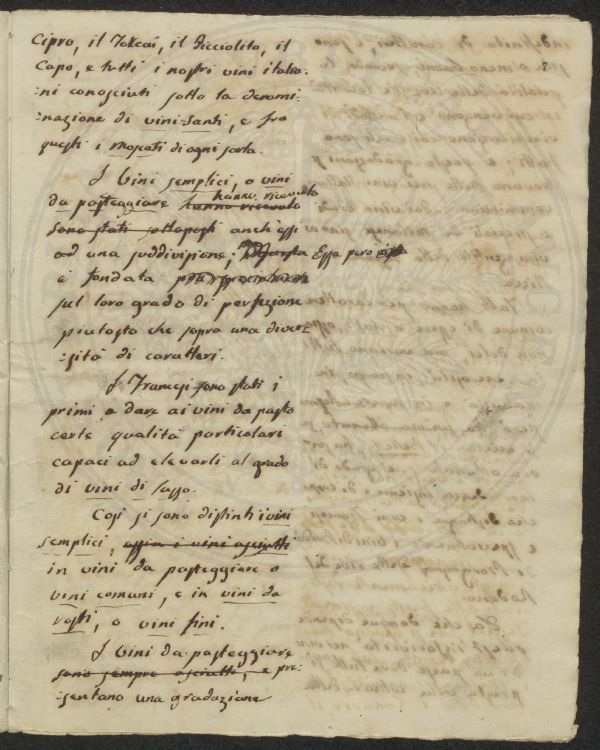 7
Cipro, il Tokcai, il Picciolito, il
Capo, e tutti i nostri vini italia-
-ni conosciuti sotto la denomi-
-nazione di vini-Santi, e fra
questi i moscati di ogni sorta.
I Vini semplici, o vini
da pasteggiare hanno ricevuto
hanno ricevuto
sono stati sottoposti anch'essi
ad una suddivisione; Essa però
è fondata
sul loro grado di perfezione
piutosto che sopra una diver-
-sità di caratteri.
I Francesi sono stati i
primi a dare ai vini da pasto
certe qualità particolari
capaci ad elevarli al grado
di vini di lusso.
Così si sono distinti i vini
semplici, ossia i vini asciutti
in vini da pasteggiare o
vini comuni, e in vini da
rosti, o vini fini.
I Vini da pasteggiare
sono sempre asciutti, e pre-
-sentano una gradazione